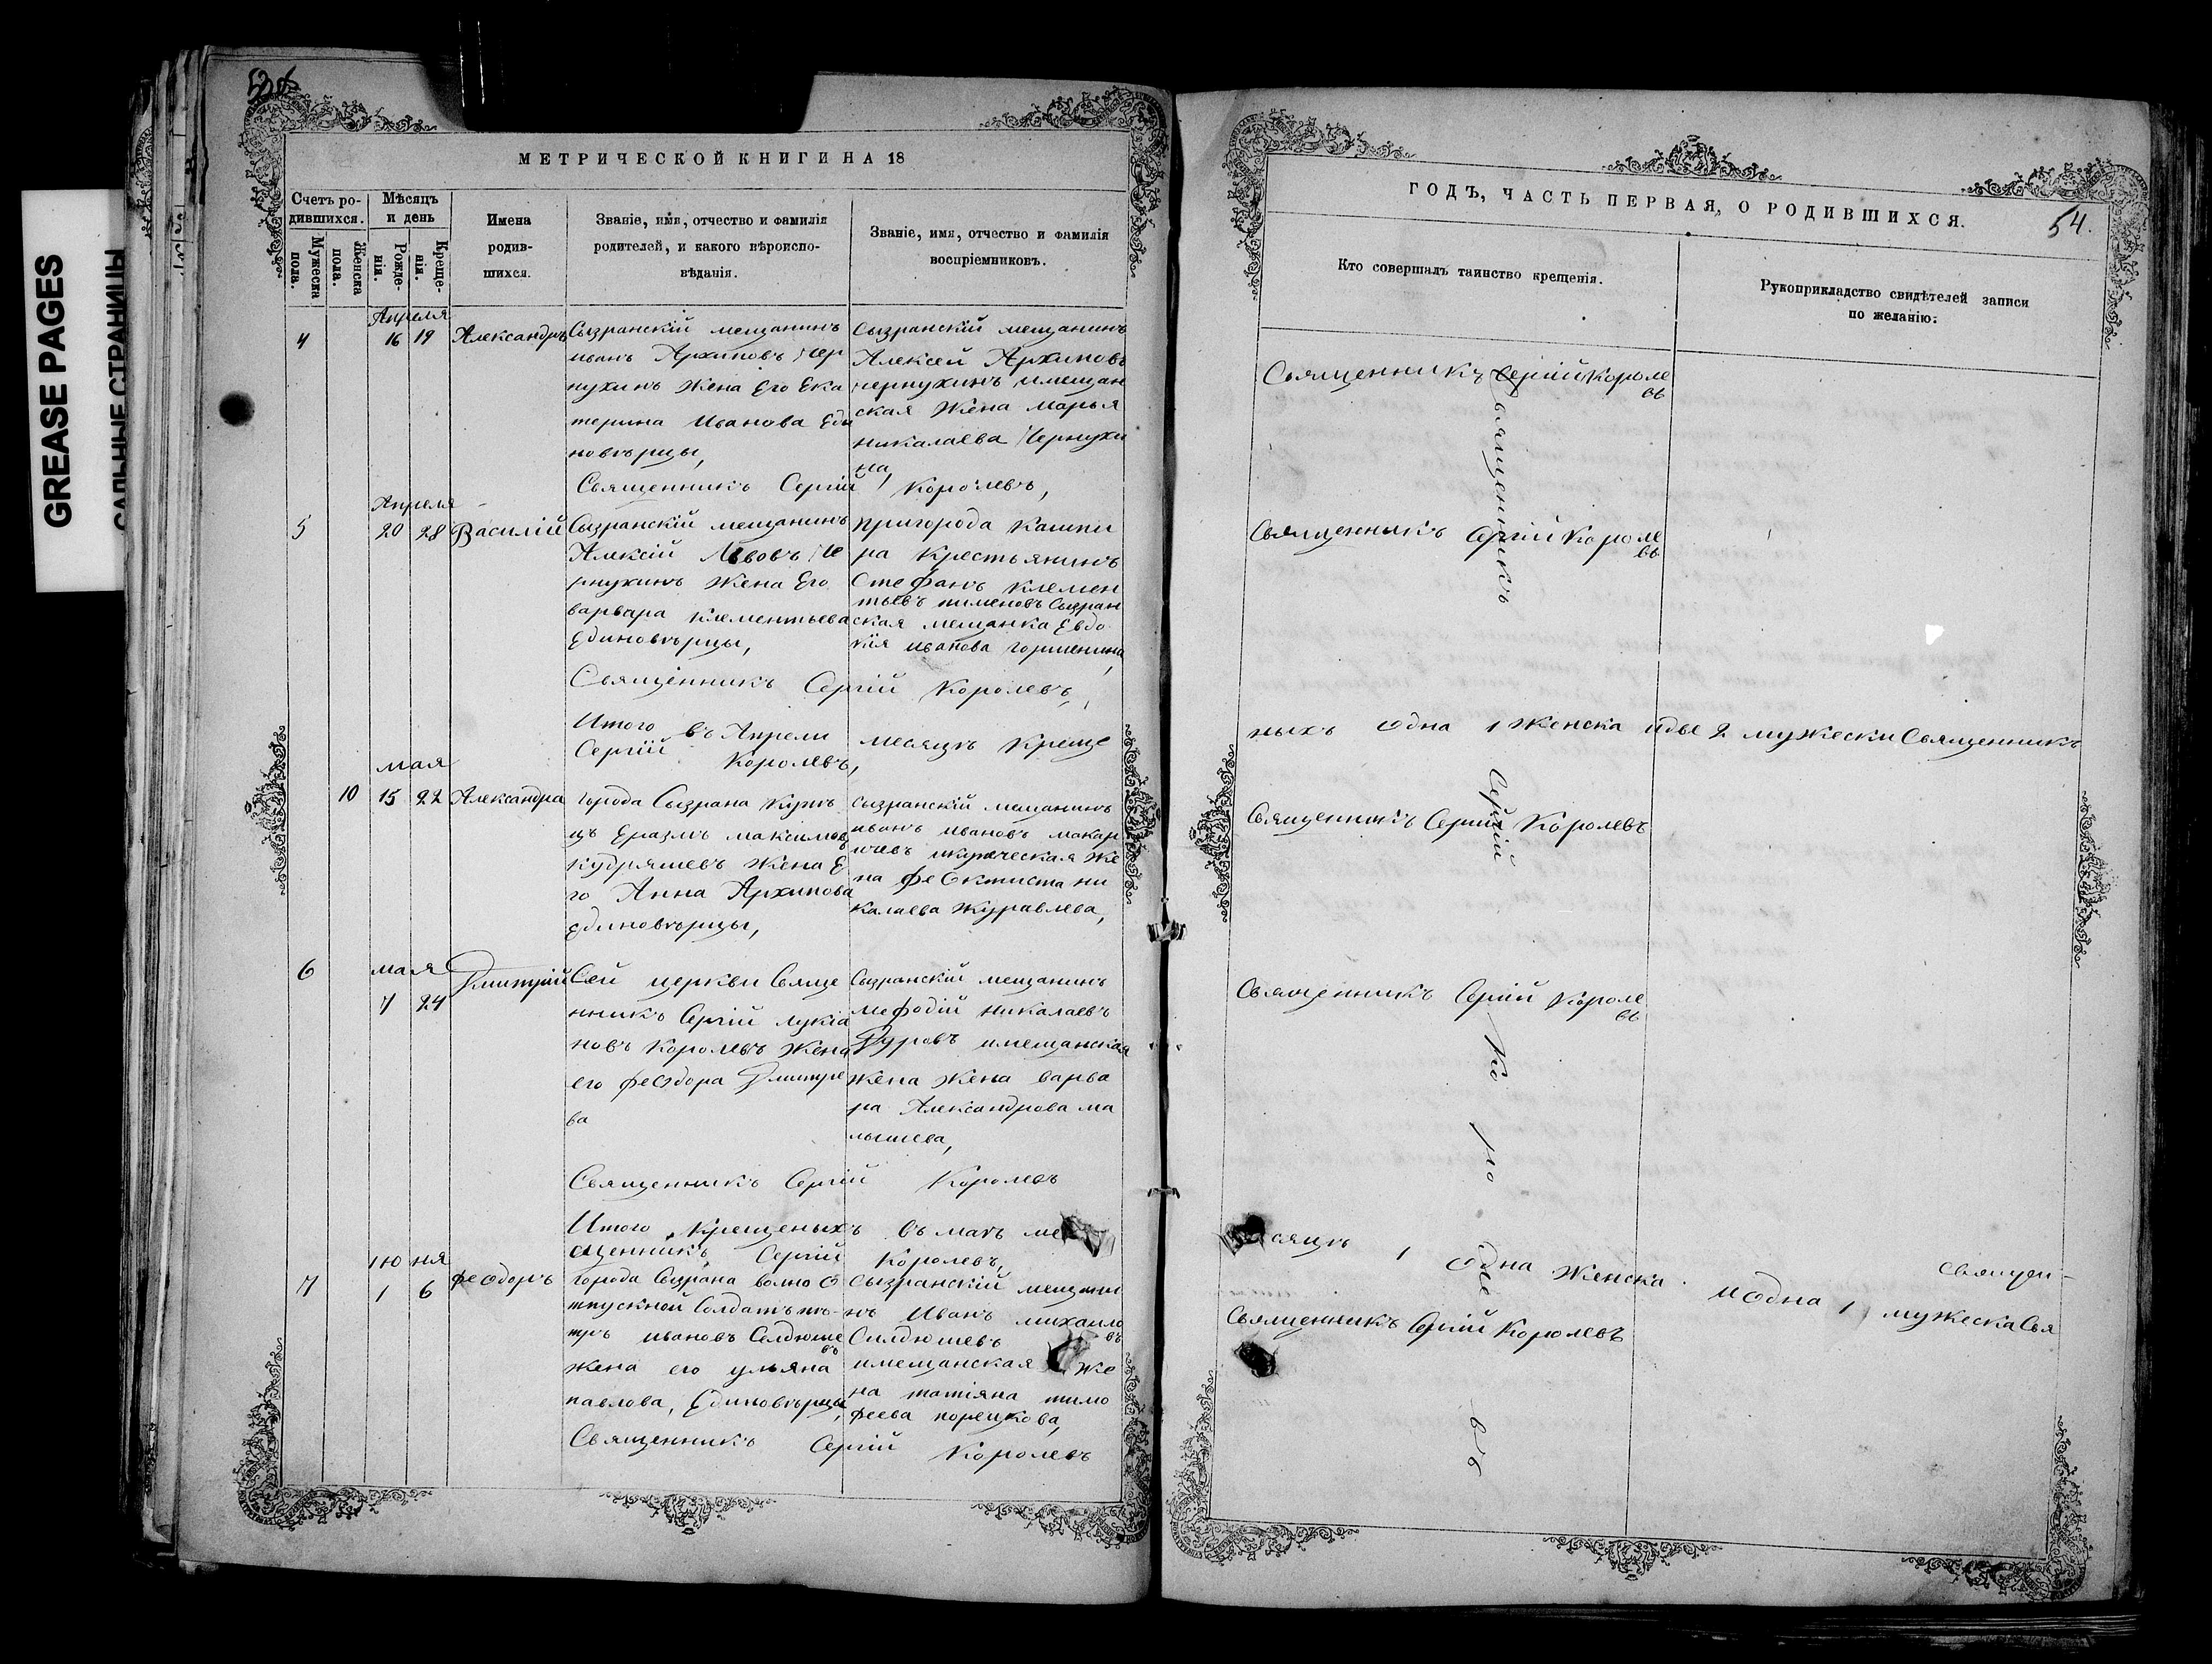 GREASE PAGES
САЛЬНЫЕ СТРАНИЦЫ
МЕТРИЧЕСКОЙ КНИГИ НА 18
Счетъ ро-
дившихся.
Мужеска
пола.
Женска
пола.
Мѣсяцъ
и день
Рожде-
нія.
Креще-
нія.
Имена
родив-
шихся.
Званіе, имя, отчество и фамилія
родителей, и какого вѣроиспо-
вѣданія.
Званіе, имя, отчество и фамилія
воспріемниковъ.
Апреля
4 16 19 Александръ
Сызранскій мещанинъ
иванъ Архиповъ Чер
нухинъ жена Его Ека
терина Иванова Еди
новѣрцы,
Сызранскій мещанинъ
Алексей Архиповъ
Чернухинъ имещан
ская Жена Марья
николаева Чернухи
на,
Священникъ Сергій Королевъ,
Апреля
5 20 28 Василій
Сызранскій мещанинъ
Алексій Львовъ Че
рнухинъ Жена Его
варвара Клементьева
Единовѣрцы,
пригорода Кашпи
ра Крестьянинъ
Стефанъ Клемен
тьевъ пименовъ Сызран
ская мещанка Евдо
кія иванова горшенина,
Священникъ Сергій Королевъ,
Итого въ Апрели месяцѣ Креще
Сергій Королевъ,
мая
10 15 22 Александра
города Сызрана Купе
цъ Еразмъ максимов
ъ
кудряшевъ жена Е
го Анна Архипова
единовѣрцы,
Сызранскій мещанинъ
иванъ ивановъ макар
ичевъ икупеческая Же
на феоктиста ни
калаева Журавлева,
6 мая Димитрій
7 24
Сей церкви Свяще
нникъ Сергій лукіа
новъ Королевъ жена
его феодора Димитре
ва
Сызранскій мещанинъ
мефодій николаевъ
Дуровъ имещанская
жена жена варва
ра Александрова ма
лышева,
Священникъ Сергій Королевъ
Итого крещеныхъ въ маѣ ме
ященникъ Сергій Королевъ,
июня
7 1 6 феодоръ
города Сызрана волно О
тпускной Солдатъ пе-
тръ ивановъ Селдюше
въ
жена его ульяна
павлова, Единовѣрцы,
Сызранскій мещани
нъ Иванъ михаило
въ
Силдюшевъ
имещанская же
на татіяна тимо
феева порецкова,
Священникъ Сергій Королевъ
ГОДЪ, ЧАСТЬ ПЕРВАЯ, О РОДИВШИХСЯ.
54.
Кто совершалъ таинство крещенія.
Рукоприкладство свидѣтелей записи
по желанію.
Священникъ Сергій Королe
въ
Священникъ Сергій Короле
въ
ныхъ одна 1 Женска идве 2 мужески Священникъ
Священникъ Сергій Королевъ
Священникъ Сергій Короле
въ
сяцѣ 1 одна Женска иодна 1 мужеска Свя
священ-
Священникъ Сергій Королевъ
Священникъ
Сергій
Ко
ро
ле
въ